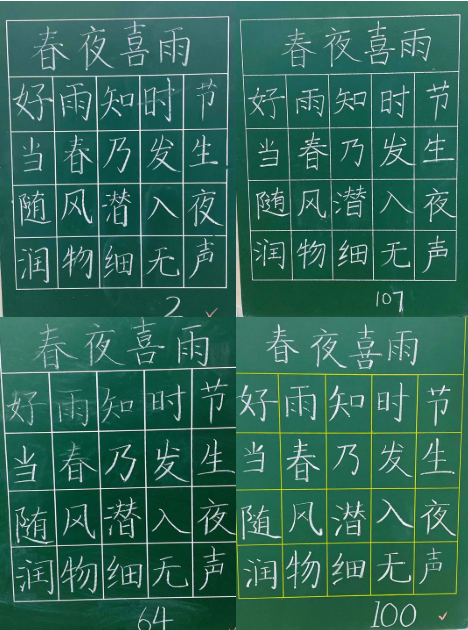 春夜喜雨
好雨知时节
当春乃发生
随风潜入夜
润物细无声
2
春夜喜雨
好雨知时节
当春乃发生
随风潜入夜
润物细无声
107
春夜喜雨
好雨知时节
当春乃发生
随风潜入夜
润物细无声
64
春夜喜雨
好雨知时节
当春乃发生
随风潜入夜
润物细无声
100